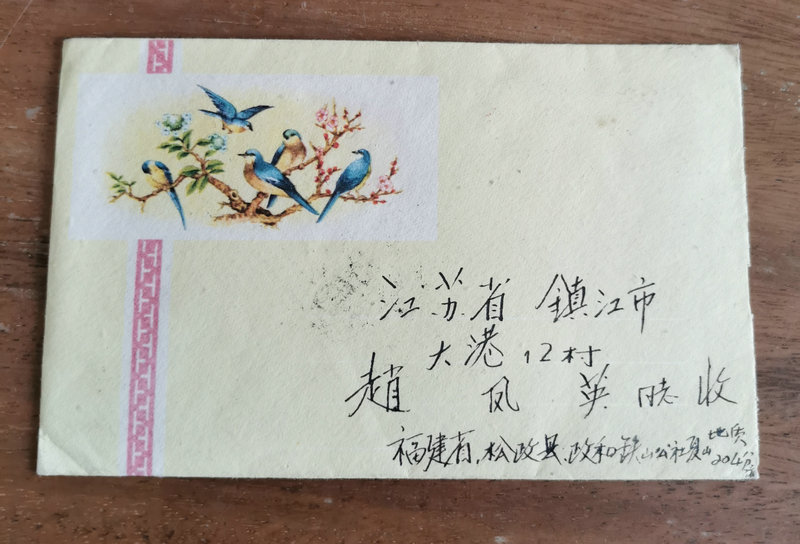 江苏省 鎮江市
大港 12村
趙 凤 英 收
福建省,松政县,政和铁山公社夏山地质204分